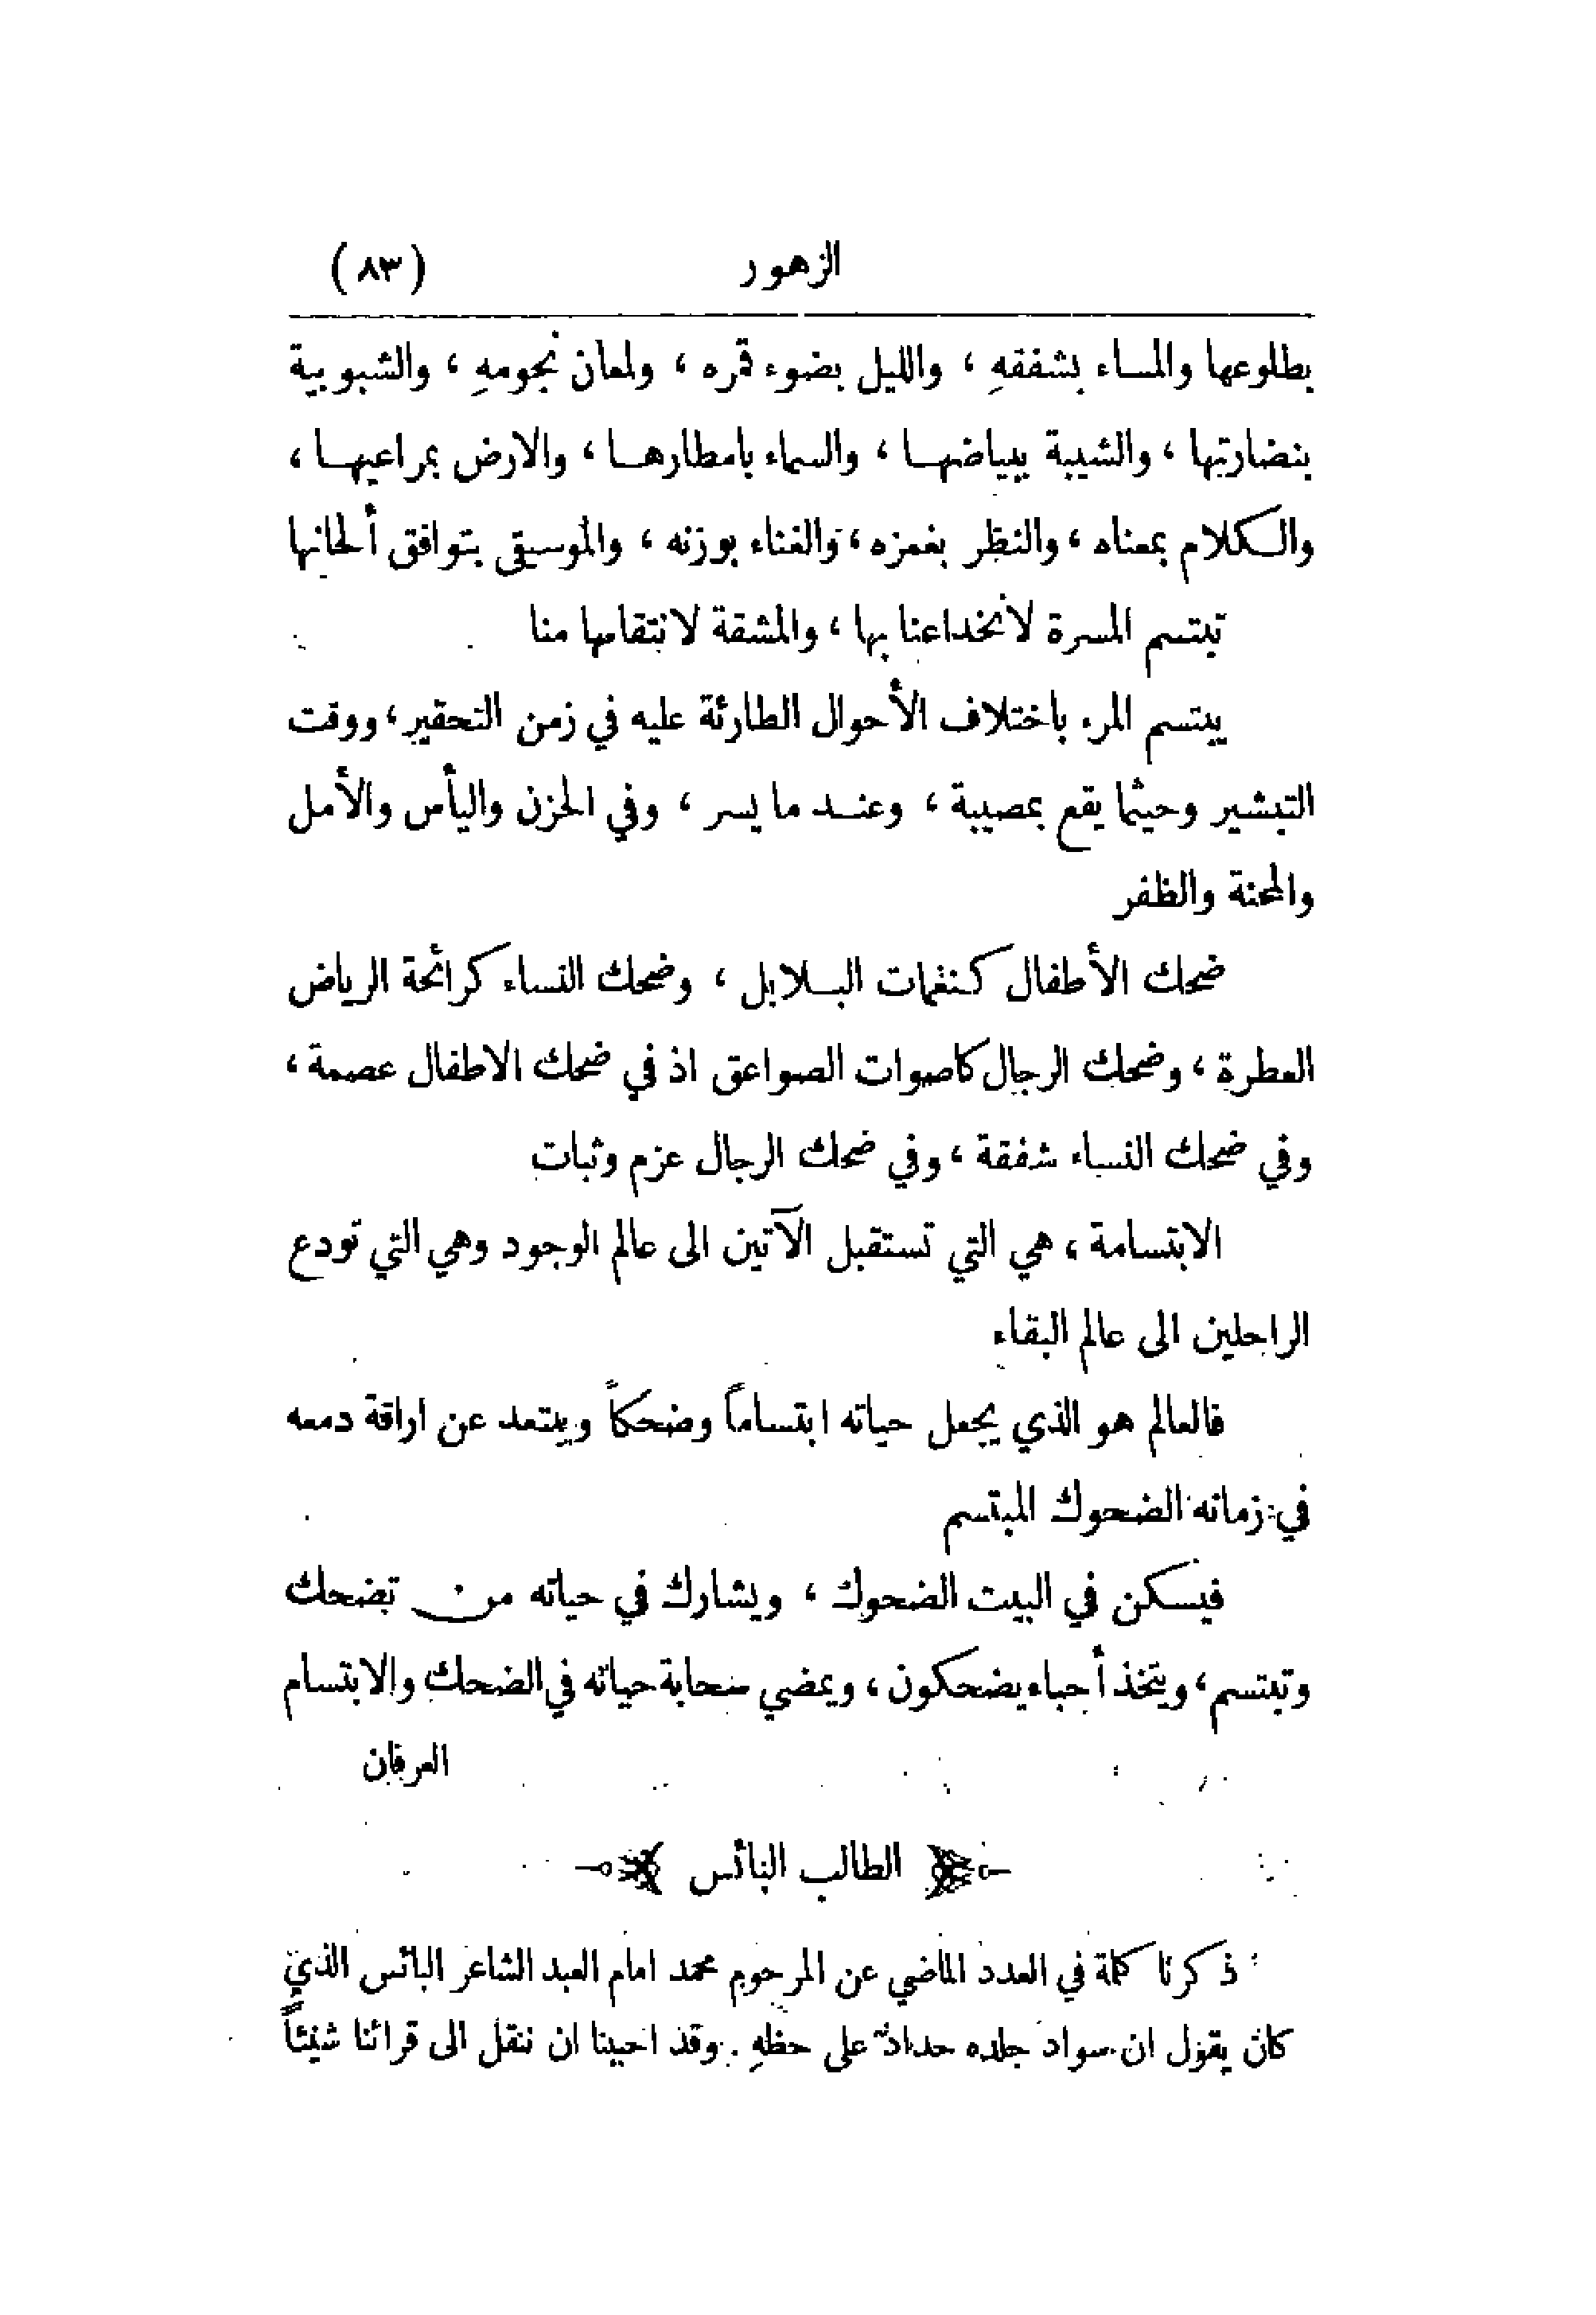 الزهور (٨٣)
بطلوعها والمساء بشفقهِ ، والليل بضوء قمره ، ولمعان نجومهِ ، والشبوبية
بنضارتها ، والشيبة ببياضهـا ، والسماء بامطارهـا ، والارض بمراعيهـا ،
والـكلام بمعناه ، والنظر بغمزه ، والغناء بوزنه ، والموسيقى بتوافق ألحانها
تبتسم المسرة لانخداعنا بها ، والمشقة لانتقامها منا
يبتسم المرء باختلاف الأحوال الطارئة عليه في زمن التحقير ، ووقت
التبشير وحيثما يقع بمصيبة ، وعنـد ما يسر ، وفي الحزن واليأس والأمل
والمحنة والظفر
ضحك الأطفال كنغمات البـلابل ، وضحك النساء كرائحة الرياض
العطرة ، وضحك الرجال كاصوات الصواعق اذ في ضحك الاطفال عصمة ،
وفي ضحك النساء شفقة ، وفي ضحك الرجال عزم وثبات
الابتسامة ، هي التي تستقبل الآتين الى عالم الوجود وهي التي تودع
الراحلين الى عالم البقاء
فالعالم هو الذي يجعل حياته ابتساماً وضحكاً ويبتعد عن اراقة دمعه
في زمانه الضحوك المبتسم
فيسكن في البيت الضحوك ، ويشارك في حياته من تضحك
وتبتسم ، ويتخذ أحباء يضحكون ، ويمضي سحابة حياته في الضحك والابتسام
العرفان
الطالب البائس
ذكرنا كلمة في العدد الماضي عن المرحوم محمد امام العبد الشاعر البائس الذي
كان يقول ان سواد جلده حداد على حظهِ . وقد احببنا ان ننقل الى قرائنا شيئاً